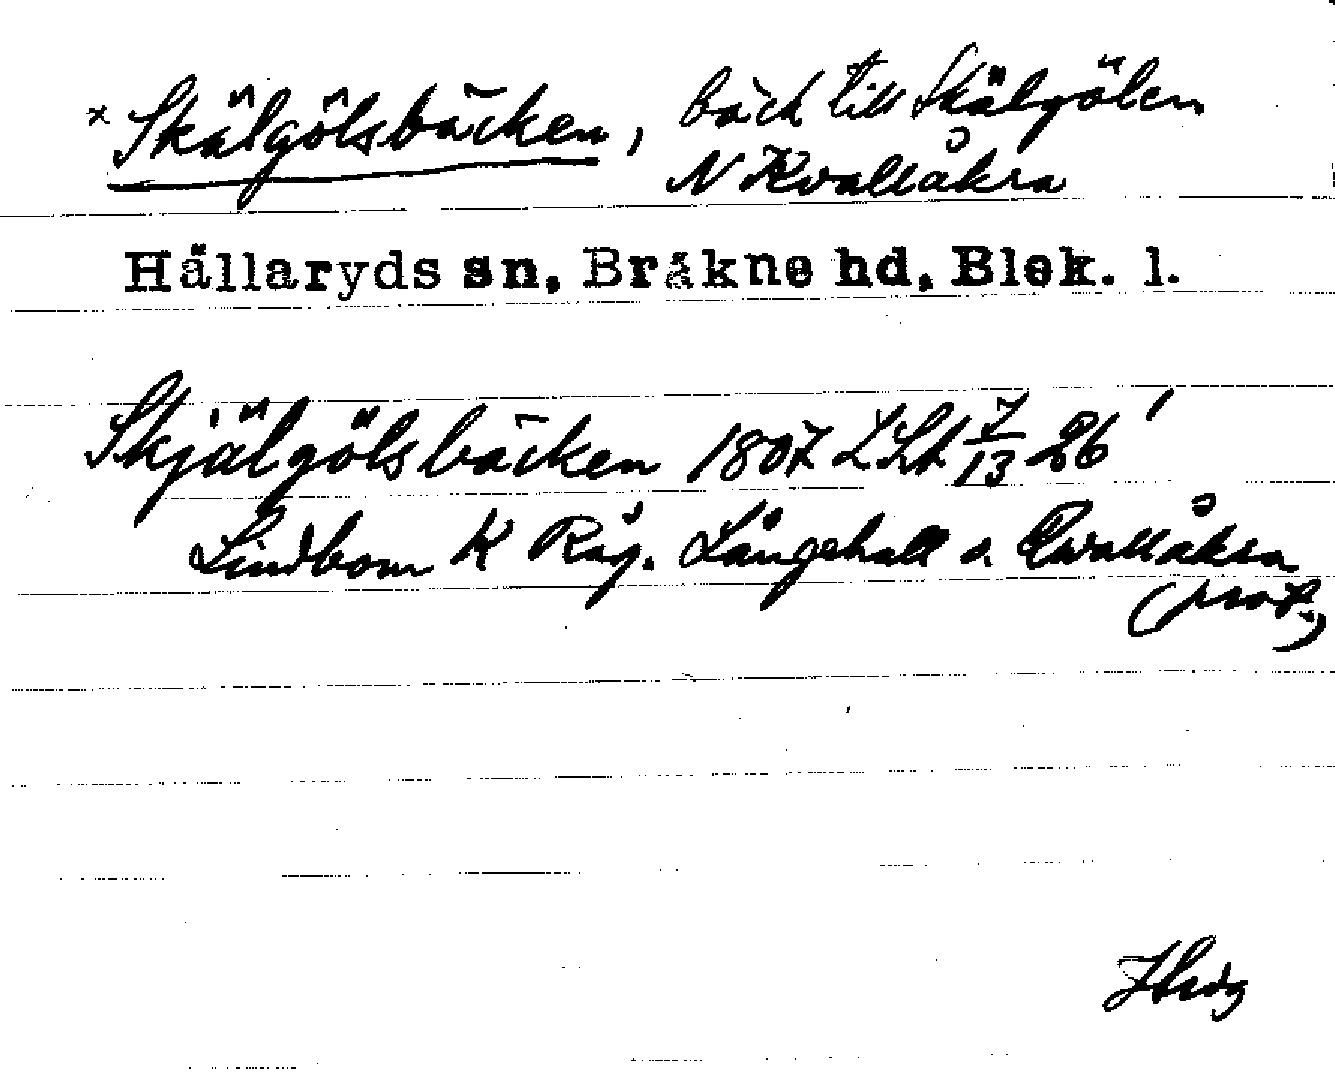 × Skälgölsbäcken, bäck till Skälgölen
N Kvallåkra
Hällaryds sn, Bräkne hd, Blek. l.
Skjälgölsbäcken 1807 LSA 7/13 26'
Lindbom K Råg. Långehall o. Qwallåkra
(prot.)